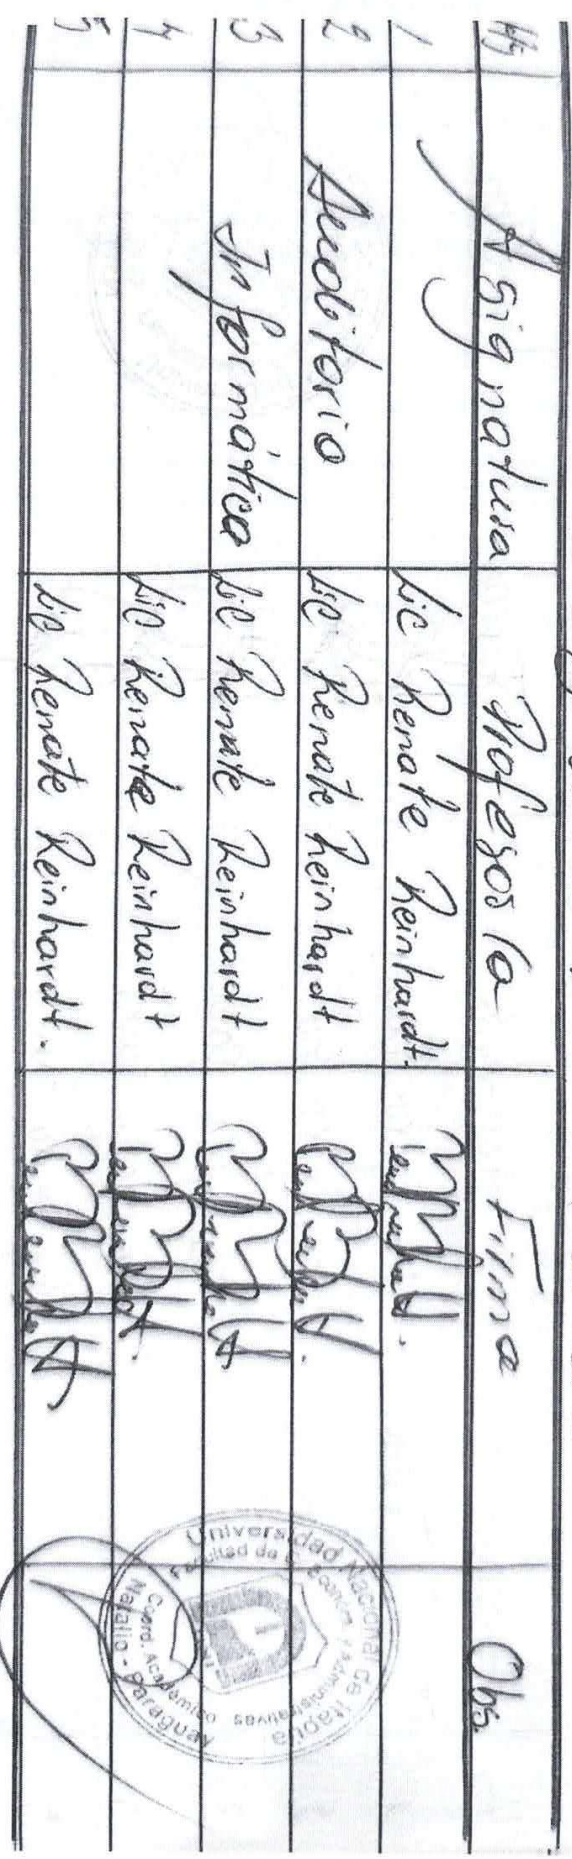 Hs Asignatura Profesor/a Firma Obs.
1 Lic Renate Reinhardt.
2 Auditorio Lic Renate Reinhardt
3 Informático Lic Renate Reinhardt
4 Lic Renate Reinhardt
5 Lic Renate Reinhardt.
Universidad Nacional de Itapúa
Facultad de C. Económ. y Administrativas
Coord. Académico
Natalio - Paraguay